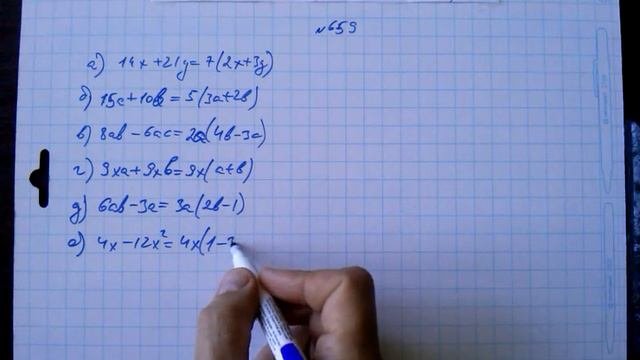 №659
а) 14x+21y=7(2x+3y)
б) 15a+10b=5(3a+2b)
в) 8ab-6ac=2a(4b-3a)
г) 9xa+9xb=9x(a+b)
д) 6ab-3a=3a(2b-1)
е) 4x-12x²=4x(1-3